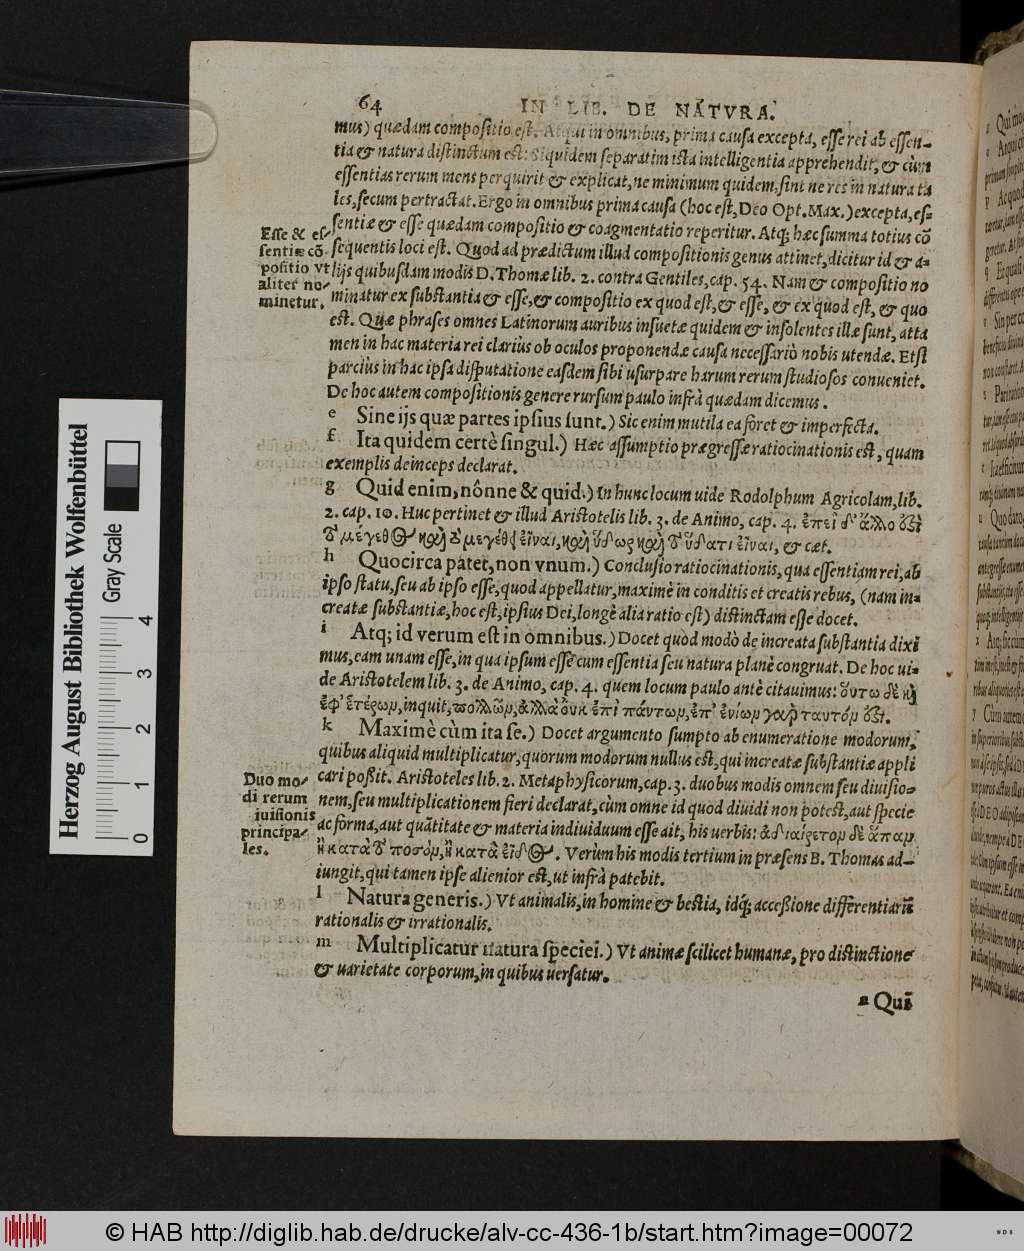 64 IN LIB. DE NATVRA.
mus) quædam compositio est. Atqui in omnibus, prima causa excepta, esse rei ab essen-
tia & natura distinctum est: Siquidem separatim ista intelligentia apprehendit, & cùm
essentias rerum mens perquirit & explicat, ne minimum quidem, sint ne res in natura ta
les, secum pertractat. Ergo in omnibus prima causa (hoc est, Deo Opt. Max.) excepta, es-
sentiæ & esse quædam compositio & coagmentatio reperitur. Atq; hæc summa totius cō
sequentis loci est. Quod ad prædictum illud compositionis genus attinet, dicitur id & a-
lijs quibusdam modis D. Thomæ lib. 2. contra Gentiles, cap. 54. Nam & compositio no
minatur ex substantia & esse, & compositio ex quod est, & esse, & ex quod est, & quo
est. Quæ phrases omnes Latinorum auribus insuetæ quidem & insolentes illæ sunt, atta
men in hac materia rei clariùs ob oculos proponendæ causa necessariò nobis utendæ. Etsi
parciùs in hac ipsa disputatione easdem sibi usurpare harum rerum studiosos conueniet.
De hoc autem compositionis genere rursum paulo infrà quædam dicemus.
Esse & es-
sentiæ cō-
positio vt
aliter no-
minetur.
e Sine ijs quæ partes ipsius sunt.) Sic enim mutila ea foret & imperfecta.
f Ita quidem certè singul.) Hæc assumptio prægressæ ratiocinationis est, quam
exemplis deinceps declarat.
g Quid enim, nónne & quid.) In hunc locum uide Rodolphum Agricolam, lib.
2. cap. 10. Huc pertinet & illud Aristotelis lib. 3. de Animo, cap. 4. ἐπεὶ δ' ἄλλο ὅϛὶ
τὸ μέγεθος καὶ τὸ μεγέθει εἶναι, καὶ ὕδωρ καὶ τὸ ὕδατι εἶναι, & cæt.
h Quocirca patet, non vnum.) Conclusio ratiocinationis, qua essentiam rei, ab
ipso statu, seu ab ipso esse, quod appellatur, maximè in conditis et creatis rebus, (nam in-
creatæ substantiæ, hoc est, ipsius Dei, longè alia ratio est) distinctam esse docet.
i Atq; id verum est in omnibus.) Docet quod modò de increata substantia dixi
mus, eam unam esse, in qua ipsum esse cum essentia seu natura planè congruat. De hoc ui-
de Aristotelem lib. 3. de Animo, cap. 4. quem locum paulo antè citauimus: οὕτω δὲ καὶ
ἐφ' ἑτέρων, inquit, πολλῶν, ἀλλὰ οὐκ ἐπὶ πάντων, ἐπ' ἐνίων γαρ ταυτόν ὅϛι.
k Maximè cùm ita se.) Docet argumento sumpto ab enumeratione modorum,
quibus aliquid multiplicatur, quorum modorum nullus est, qui increatæ substantiæ appli
cari poßit. Aristoteles lib. 2. Metaphysicorum, cap. 3. duobus modis omnem seu diuisio-
nem, seu multiplicationem fieri declarat, cùm omne id quod diuidi non potest, aut specie
ac forma, aut quātitate & materia indiuiduum esse ait, his uerbis: ἀδιαίρετον δὲ ἅπαν
ἢ κατὰ τὸ ποσόν, ἢ κατὰ εἶδος. Verùm his modis tertium in præsens B. Thomas ad-
iungit, qui tamen ipse alienior est, ut infrà patebit.
Duo mo-
di rerum
iuisionis
principa-
les.
l Natura generis.) Vt animalis, in homine & bestia, idq́; acceßione differentiarū
rationalis & irrationalis.
m Multiplicatur natura speciei.) Vt animæ scilicet humanæ, pro distinctione
& uarietate corporum, in quibus uersatur.
n Quī
Herzog August Bibliothek Wolfenbüttel
Gray Scale
0 1 2 3 4
© HAB http://diglib.hab.de/drucke/alv-cc-436-1b/start.htm?image=00072